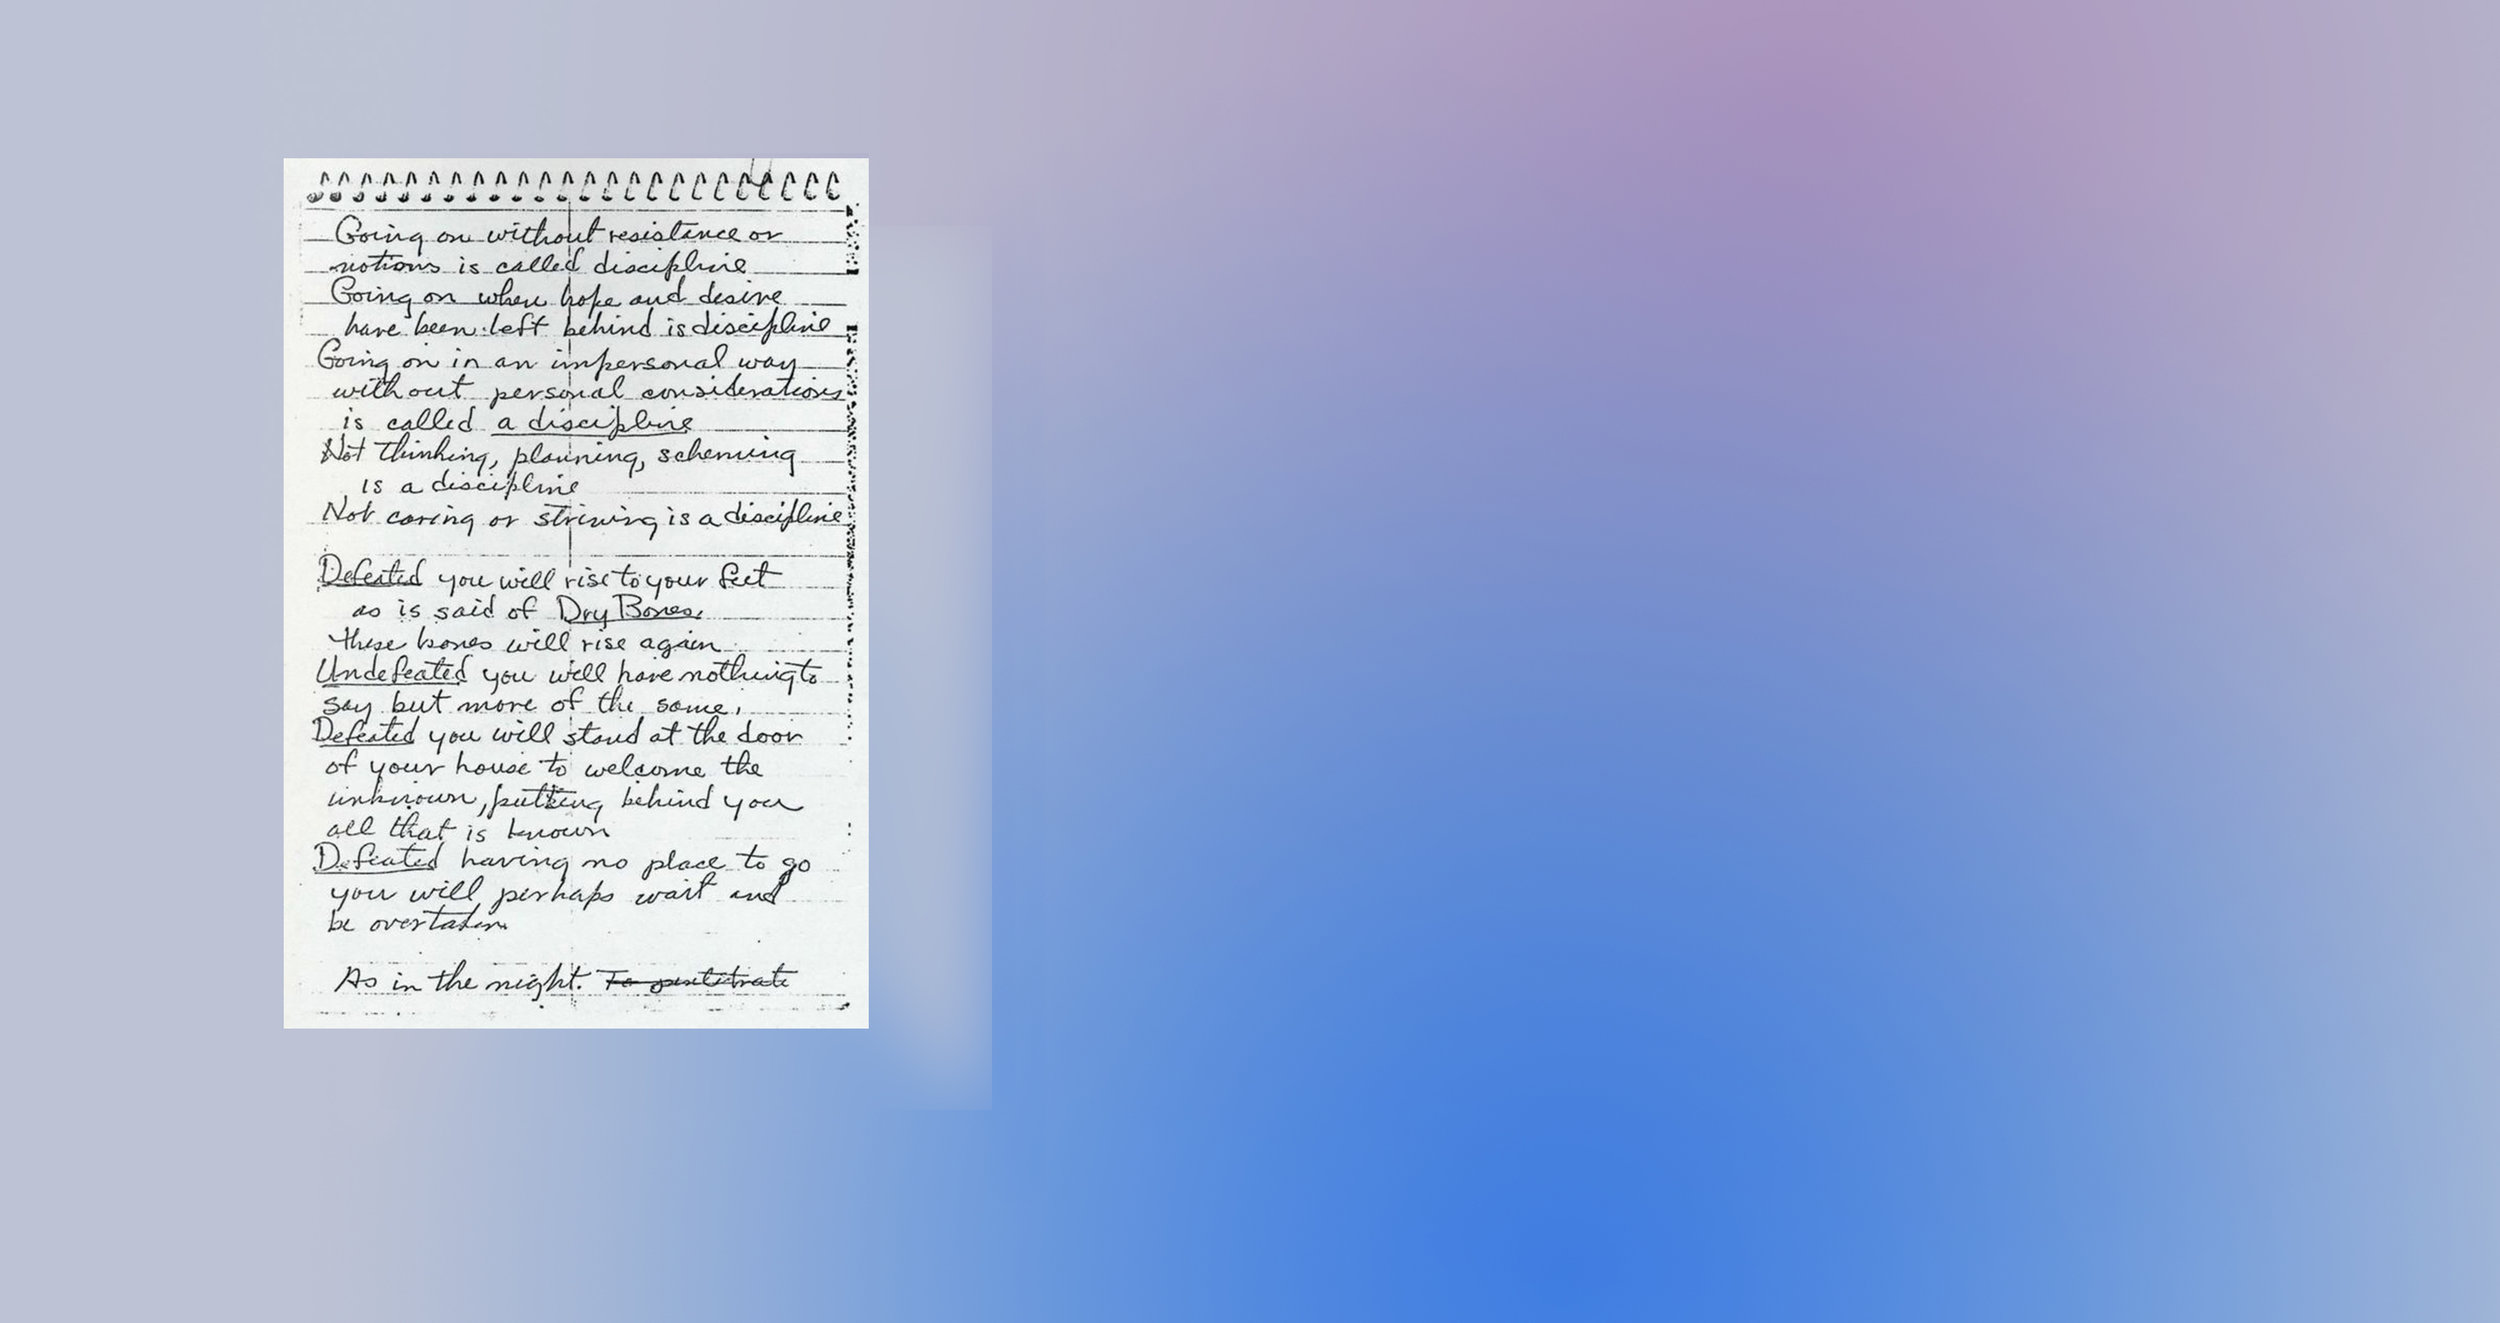 Going on without resistance or
notions is called discipline
Going on when hope and desire
have been left behind is discipline
Going on in an impersonal way
without personal considerations
is called a discipline
Not thinking, planning, scheming
is a discipline
Not caring or striving is a discipline
Defeated you will rise to your feet
as is said of Dry Bones.
these bones will rise again
Undefeated you will have nothing to
say but more of the same.
Defeated you will stand at the door
of your house to welcome the
unknown, putting behind you
all that is known
Defeated having no place to go
you will perhaps wait and
be overtaken.
As in the night. To